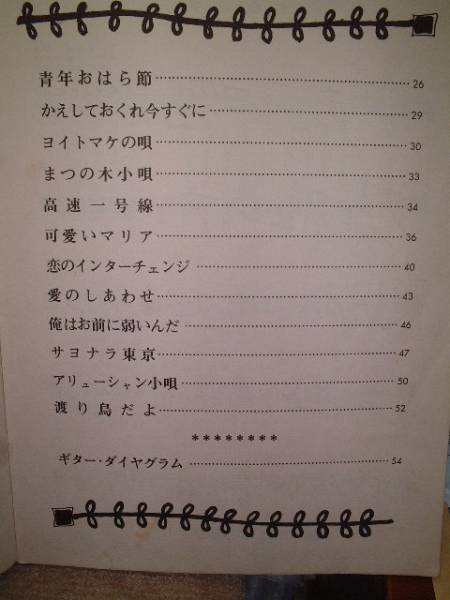 青年おはら節……………………26
かえしておくれ今すぐに……………………29
ヨイトマケの唄……………………30
まつの木小唄……………………33
高速一号線……………………34
可愛いマリア……………………36
恋のインターチェンジ……………………40
愛のしあわせ……………………43
俺はお前に弱いんだ……………………46
サヨナラ東京……………………47
アリューシャン小唄……………………50
渡り鳥だよ……………………52
********
ギター・ダイヤグラム……………………54